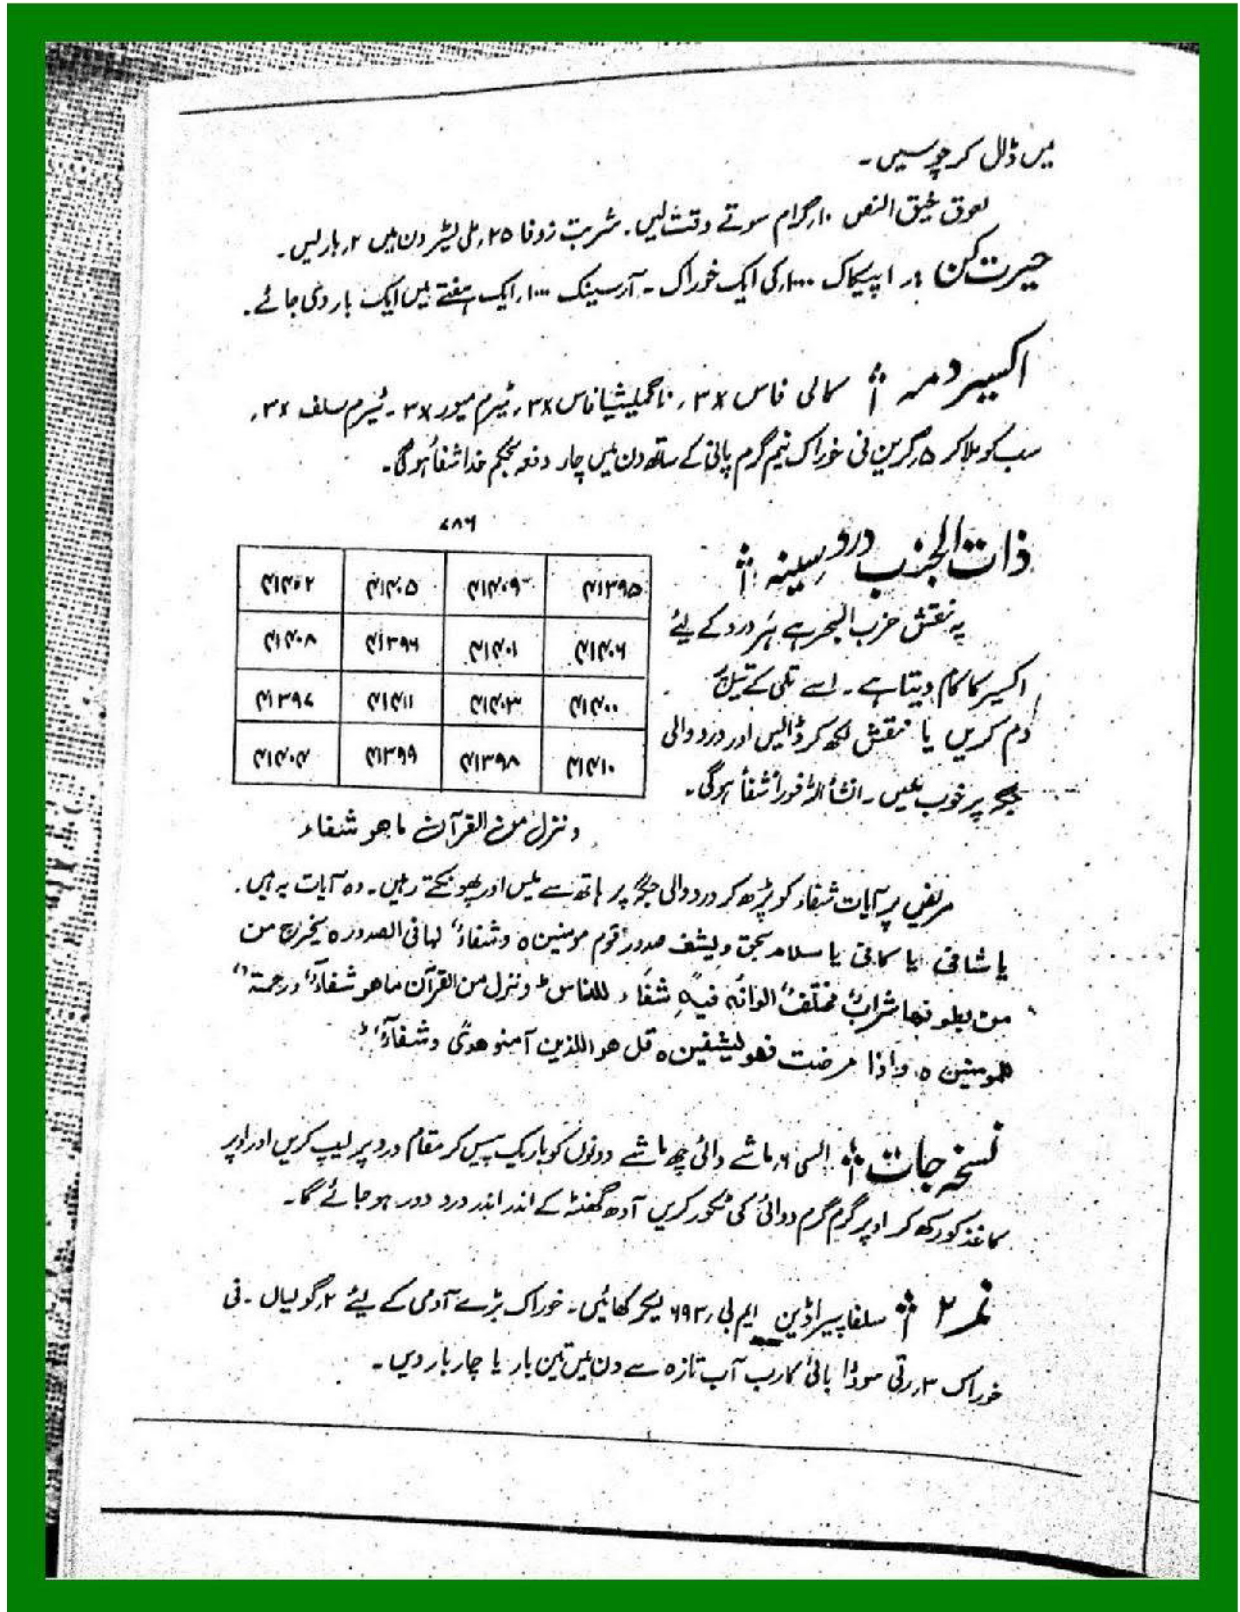 میں ڈال کر چوسیں۔
لعوق ضیق النفس ۱۰ گرام سوتے وقت لیں۔ شربت زوفا ۲۵ ملی لیٹر دن میں ۲ بار لیں۔
حیرت کن :ـ اپیکاک ۱۰۰۰ کی ایک خوراک ۔ آرسینک ۱۰۰۰ ایک ہفتے میں ایک بار دی جائے۔
اکسیر دمہ : کالی فاس ۳x ، ناگمیشیا فاس ۳x ، نیٹرم میور ۳x ۔ نیٹرم سلف ۳x ،
سب کو ملا کر ۵ گرین فی خوراک نیم گرم پانی کے ساتھ دن میں چار دفعہ بحکم خدا شفاُ ہوگی۔
ذات الجنب درد سینہ :
۷۸۶
۴۱۳۹۵ ۴۱۴۰۹ ۴۱۴۰۵ ۴۱۴۰۲
۴۱۴۰۶ ۴۱۴۰۱ ۴۱۳۹۶ ۴۱۴۰۸
۴۱۴۰۰ ۴۱۴۰۳ ۴۱۴۱۱ ۴۱۳۹۷
۴۱۴۱۰ ۴۱۳۹۸ ۴۱۳۹۹ ۴۱۴۰۴
یہ نقش حزب البحر ہے ہر درد کے لیئے
اکسیر کا کام دیتا ہے ۔ اسے تلی کے تیل پر
دم کریں یا نقش لکھ کر ڈالیں اور درد والی
جگہ پر خوب ملیں ۔ انشأ اللہ فوراً شفأ ہوگی۔
و ننزل من القرآن ما ھو شفاء
مریض پر آیات شفاء کو پڑھ کر درد والی جگہ پر ہاتھ سے ملیں اور پھونکتے رہیں۔ وہ آیات یہ ہیں۔
یا شافی یا کافی یا سلام بحق و یشف صدور قوم مومنین ہ و شفاءٌ لما فی الصدور ہ یخرج من
من بطونھا شرابٌ مختلفٌ الوانہ فیہِ شفاء للناس ط و ننزل من القرآن ما ھو شفاءٌ و رحمۃ
للمومنین ہ و اذا مرضت فھو یشفین ہ قل ھو اللذین آمنو ھدًی و شفآءٌ ط
نسخہ جات : السی ۶ ماشے رائی چھ ماشے دونوں کو باریک پیس کر مقام درد پر لیپ کریں اور اوپر
کاغذ کو رکھ کر اوپر گرم گرم دوائی کی ٹکور کریں آدھ گھنٹہ کے اندر اندر درد دور ہو جائے گا۔
نمبر ۲ : سلفا پیراڈین ایم بی ۶۹۳ لیکر کھائیں۔ خوراک بڑے آدمی کے لیئے ۲ گولیاں ۔ فی
خوراک ۳ رتی سوڈا بائی کارب آب تازہ سے دن میں تین بار یا چار بار دیں ۔